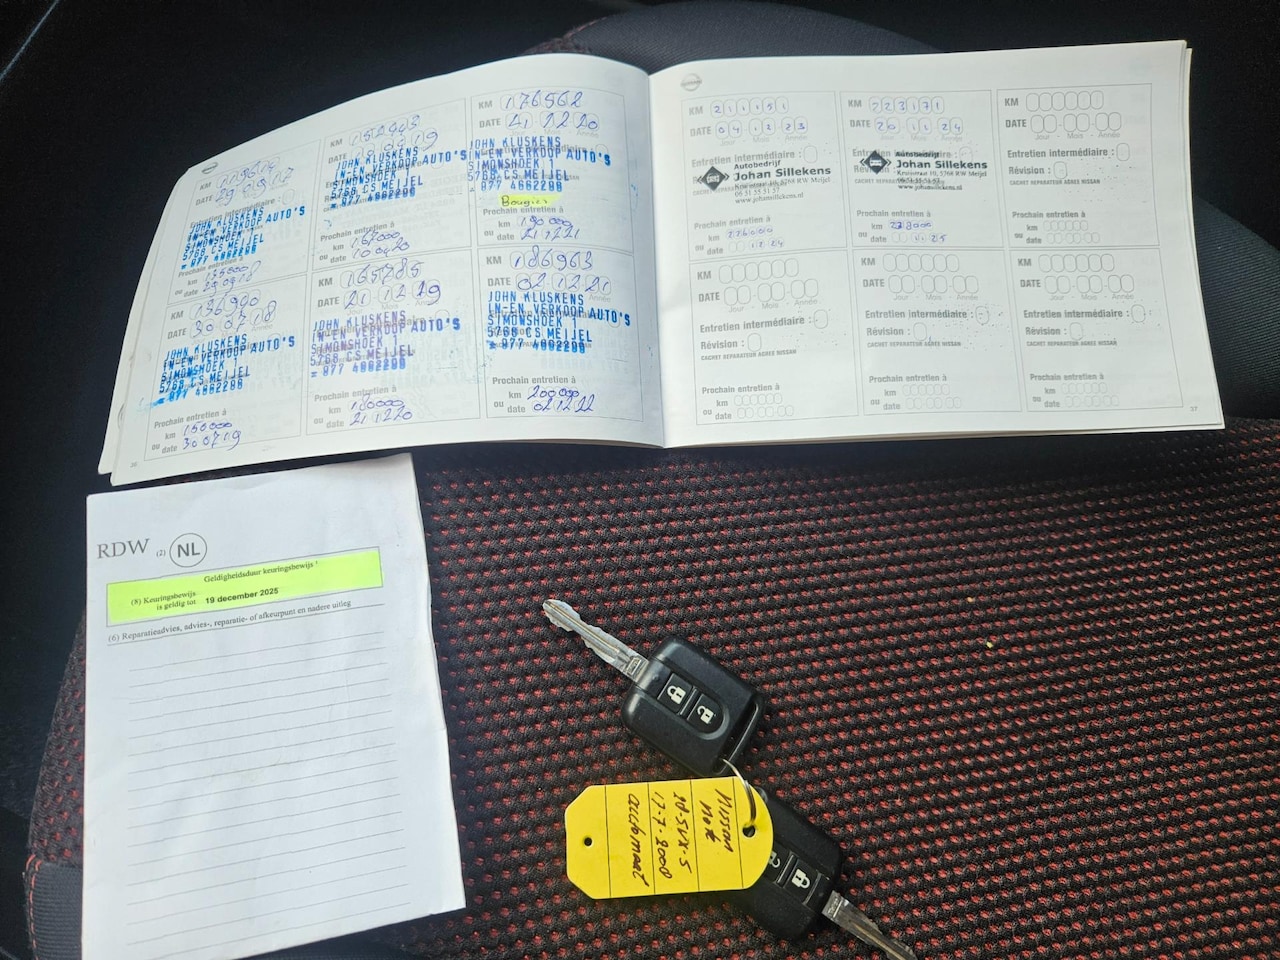 KM 119614
DATE 29 09 17
Entretien intermédiaire
JOHN KLUSKENS
IN-EN VERKOOP AUTO'S
SIMONSHOEK 1
5768 CS MEIJEL
077 4662286
Prochain entretien à
km 135000
ou date 29 09 18
KM 136900
DATE 30 07 18
JOHN KLUSKENS
IN-EN VERKOOP AUTO'S
SIMONSHOEK 1
5768 CS MEIJEL
077 4662286
Prochain entretien à
km 150000
ou date 30 07 19
36
KM 152943
DATE 19
JOHN KLUSKENS
IN-EN VERKOOP AUTO'S
SIMONSHOEK 1
5768 CS MEIJEL
077 4662286
Prochain entretien à
km
ou date 10 04 20
KM 165785
DATE 21 12 19
JOHN KLUSKENS
IN-EN VERKOOP AUTO'S
SIMONSHOEK 1
5768 CS MEIJEL
077 4662286
Prochain entretien à
km 180000
ou date 21 12 20
KM 176562
DATE 21 12 20
JOHN KLUSKENS
IN-EN VERKOOP AUTO'S
SIMONSHOEK 1
5768 CS MEIJEL
077 4662286
Bougies
Prochain entretien à
km 190000
ou date 21 12 21
KM 186963
DATE 02 12 21
Année
JOHN KLUSKENS
IN-EN VERKOOP AUTO'S
SIMONSHOEK 1
5768 CS MEIJEL
077 4662286
Prochain entretien à
km 200000
ou date 02 12 22
KM 211151
DATE 04 12 23
Jour - Mois - Année
Entretien intermédiaire :
Autobedrijf
Johan Sillekens
5768 RW Meijel
06 51 55 31 57
www.johansillekens.nl
Prochain entretien à
km 226000
ou date 12 24
KM 223171
DATE 20 11 24
Jour - Mois - Année
Autobedrijf
Johan Sillekens
5768 RW Meijel
06 51 55 31 57
www.johansillekens.nl
Prochain entretien à
km 238000
ou date 11 25
KM
DATE
Jour - Mois - Année
Entretien intermédiaire :
Révision :
CACHET REPARATEUR AGREE NISSAN
Prochain entretien à
km
ou date
KM
DATE
Jour - Mois - Année
Entretien intermédiaire :
Révision :
CACHET REPARATEUR AGREE NISSAN
Prochain entretien à
km
ou date
KM
DATE
Jour - Mois - Année
Entretien intermédiaire :
Révision :
CACHET REPARATEUR AGREE NISSAN
Prochain entretien à
km
ou date
KM
DATE
Jour - Mois - Année
Entretien intermédiaire :
Révision :
CACHET REPARATEUR AGREE NISSAN
Prochain entretien à
km
ou date
37
RDW (2) NL
Geldigheidsduur keuringsbewijs
(8) Keuringsbewijs
is geldig tot 19 december 2025
(6) Reparatieadvies, advies-, reparatie- of afkeurpunt en nadere uitleg
Nissan
Note
SVX-5
17-7-2008
automaat